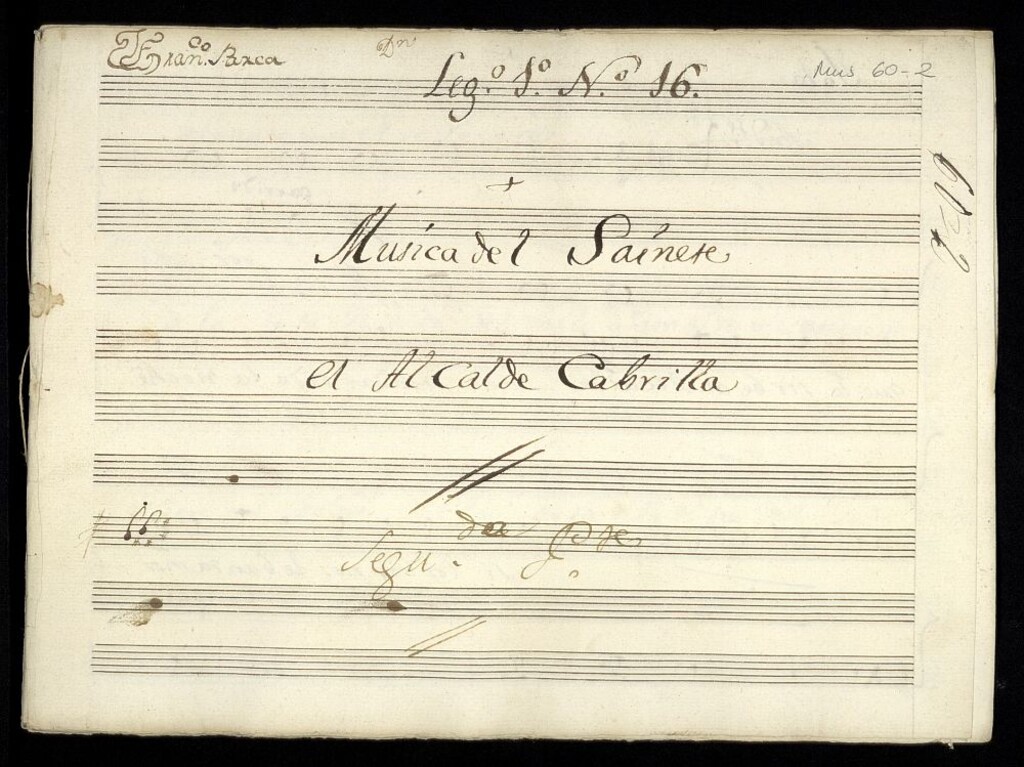 Fran.co Baxca
Dn
Leg.o 1.o N.o 16.
Mus 60-2
60=2
+
Musica del Sainete
el Alcalde Cabrilla
Segu.